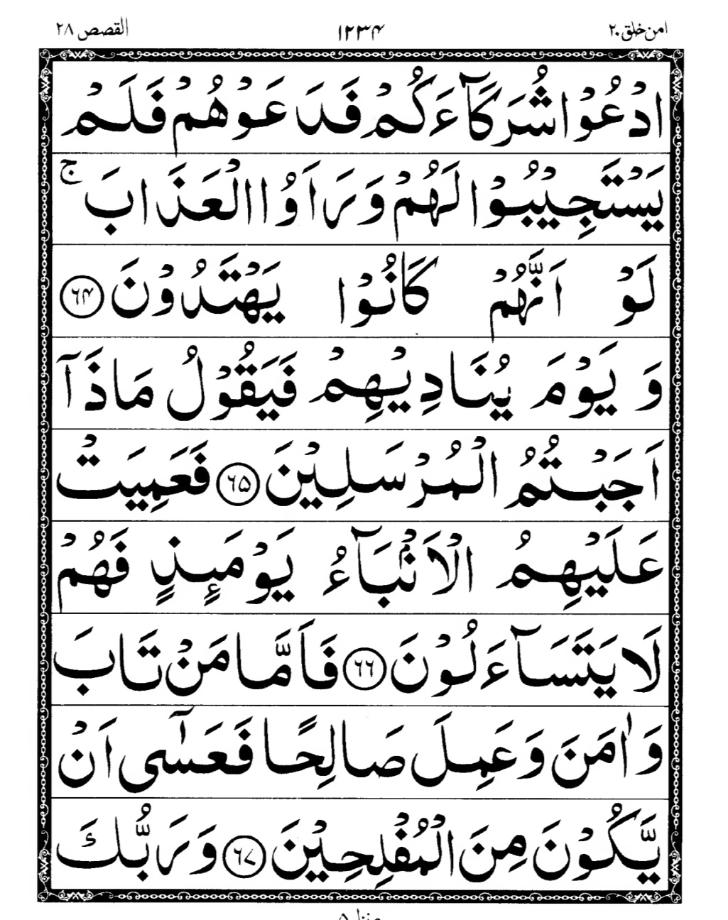 امن خلق ۲۰ ۱۲۳۴ القصص ۲۸
ادْعُوْا شُرَكَآءَكُمْ فَدَعَوْهُمْ فَلَمْ
يَسْتَجِيْبُوْا لَهُمْ وَرَاَوُا الْعَذَابَ ۚ
لَوْ اَنَّهُمْ كَانُوْا يَهْتَدُوْنَ ۶۴
وَ يَوْمَ يُنَادِيْهِمْ فَيَقُوْلُ مَاذَآ
اَجَبْتُمُ الْمُرْسَلِيْنَ ۶۵ فَعَمِيَتْ
عَلَيْهِمُ الْاَنْۢبَآءُ يَوْمَىِٕذٍ فَهُمْ
لَا يَتَسَآءَلُوْنَ ۶۶ فَاَمَّا مَنْ تَابَ
وَاٰمَنَ وَعَمِلَ صَالِحًا فَعَسٰۤى اَنْ
يَّكُوْنَ مِنَ الْمُفْلِحِيْنَ ۶۷ وَرَبُّكَ
منزل ۵